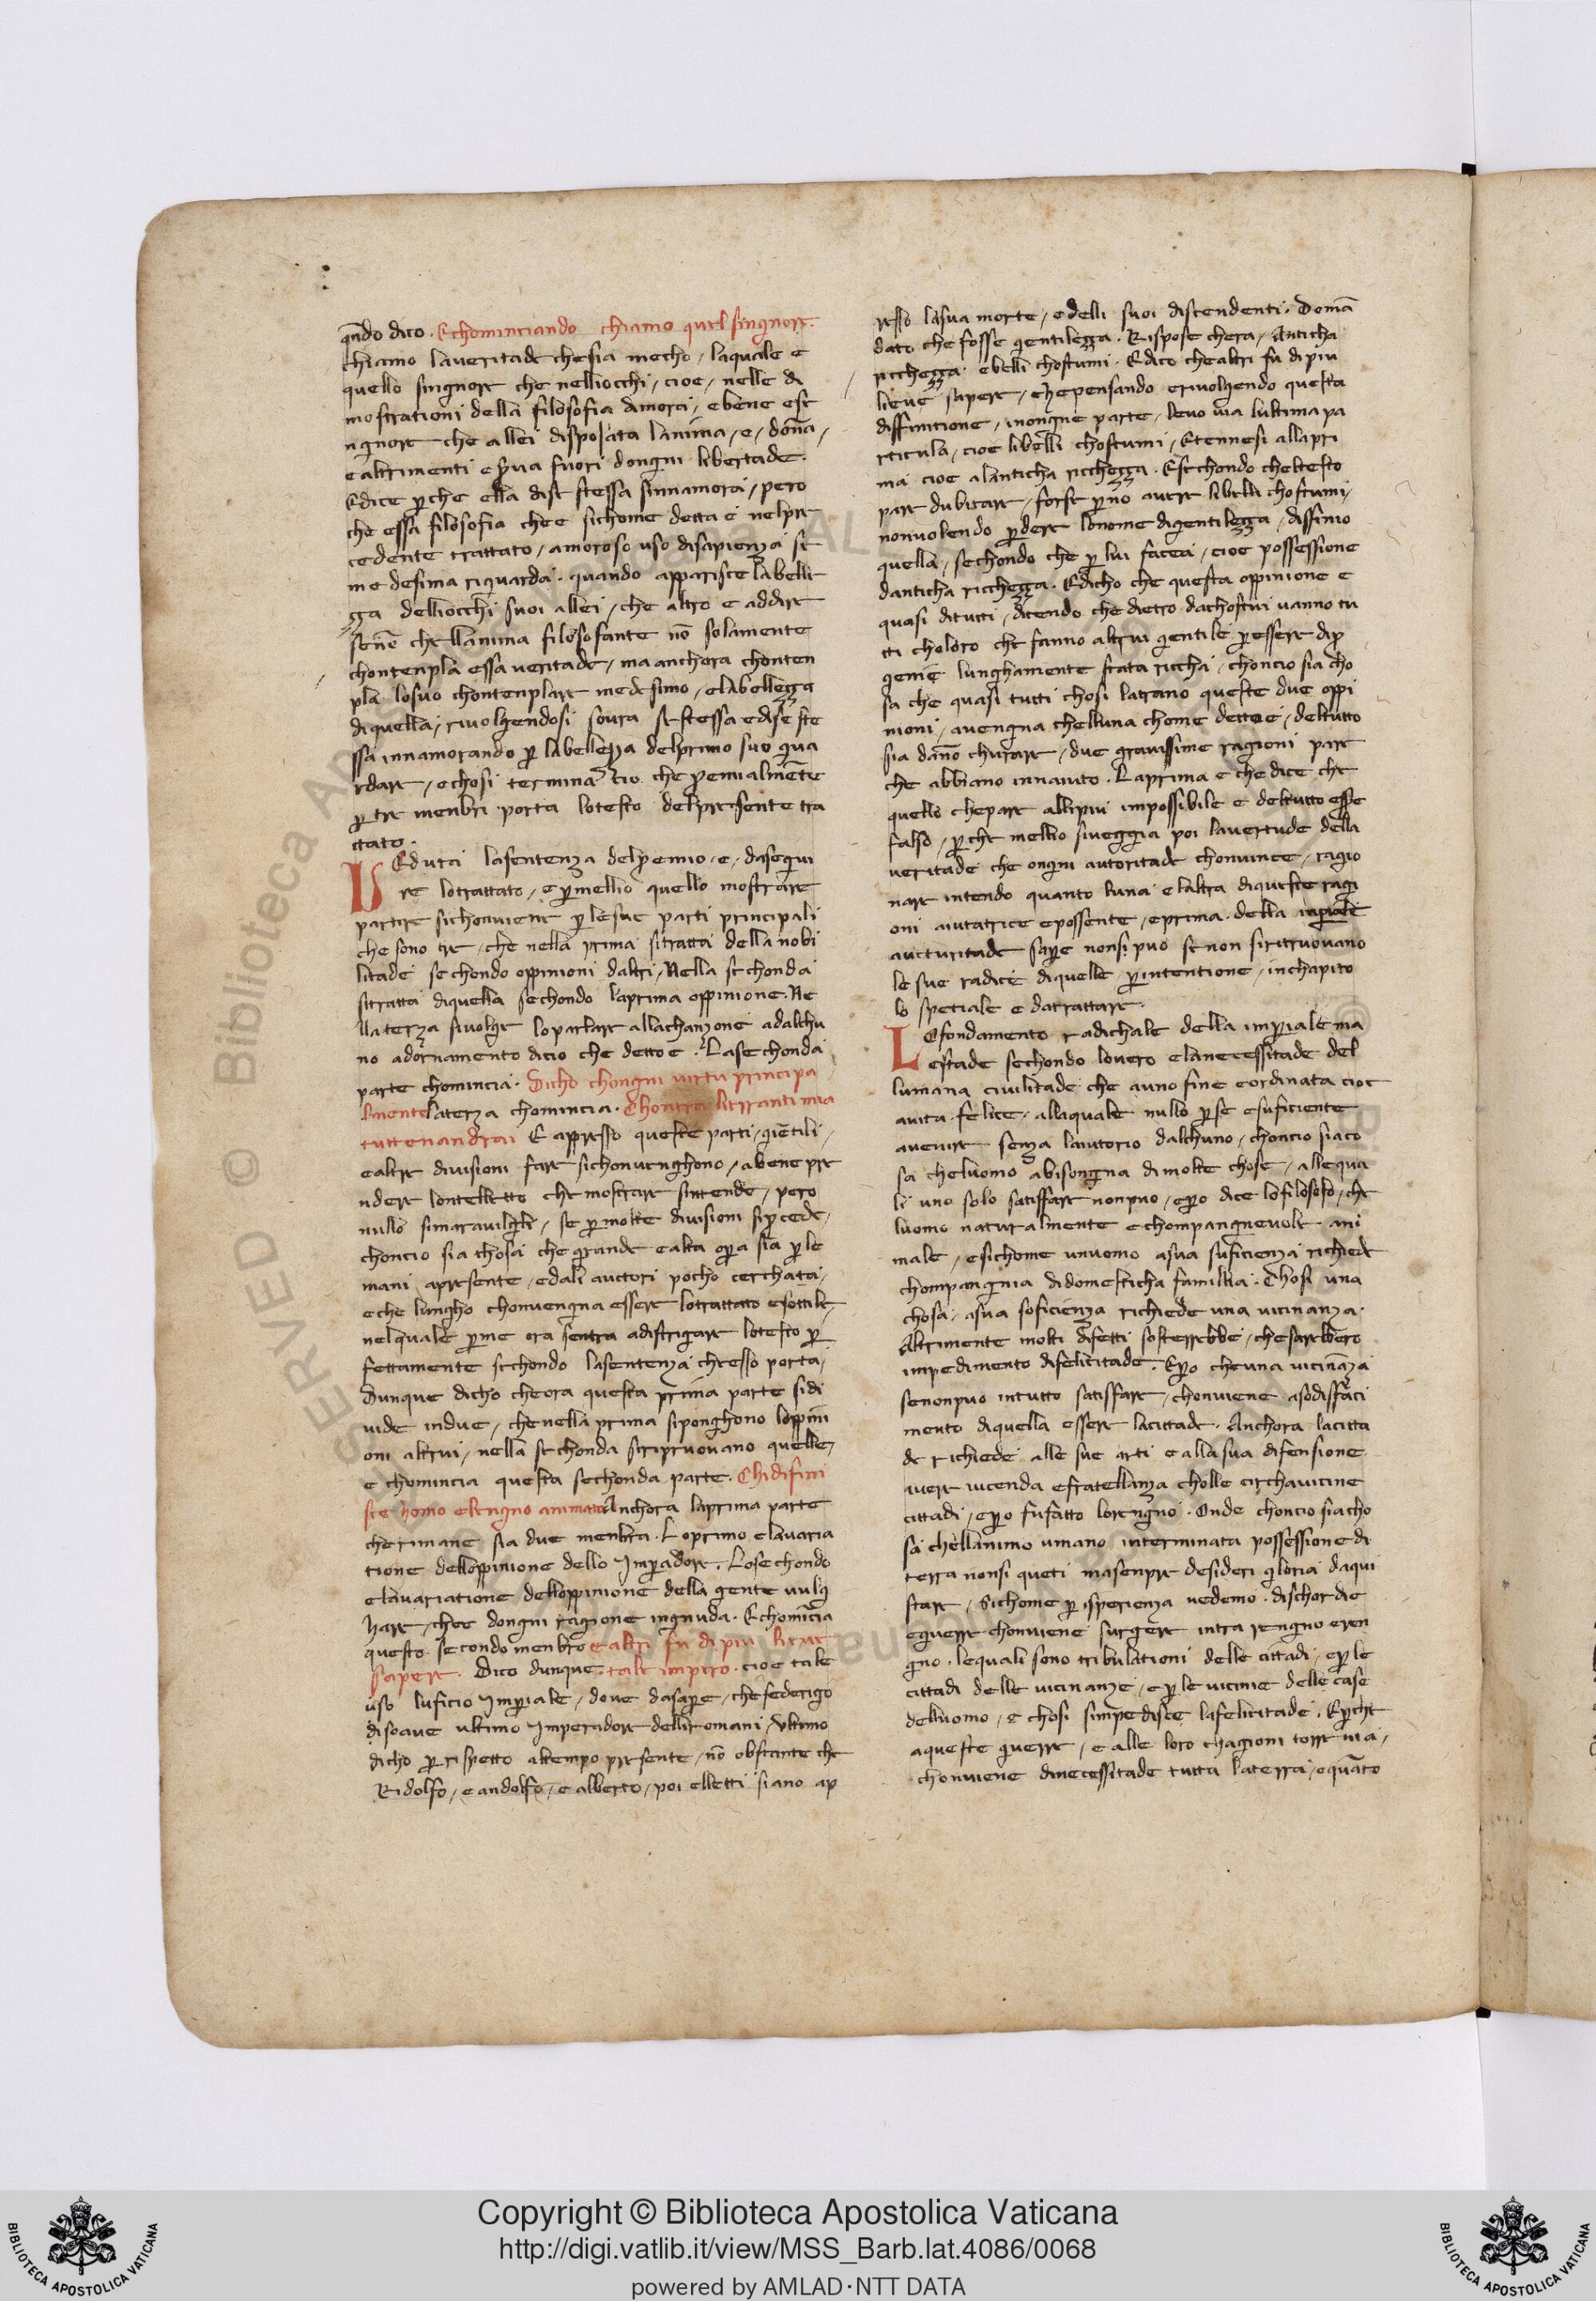 qndo dico. Echominciando chiamo quel singnore.
chiamo laveritade chesia mecho / laquale e
quello singnore che nelliocchi / cioe / nelle di
mostrationi della filosofia dimora / ebene e si
ngnore che allei disposata lanima / e / dona /
e altrimenti e sua fuori dongni libertade.
Edice pche ella dise stessa sinnamora / pero
che essa filosofia che e sichome detta e nelpre
cedente trattato / amoroso uso disapienza se
medesima riguarda. quando apparisce labelle
zza delliocchi suoi allei / che altro e addire
senō chellanima filosofante nō solamente
chontenpla essa veritade / ma anchora chonten
pla losuo chontenplare medesimo / elabellezza
diquella / rivolgendosi sovra sestessa edise ste
ssa innamorando p labellezza delprimo suo gua
rdare / echosi termina cio. che pemialmēte
p tre menbri porta lotesto delpresente tra
ttato.
VEduta lasentenza delpemio / e / daseghui
re lotrattato / e pmellio quello mostrare
partire sichonviene p lesue parti principali
che sono tre / che nella prima sitratta della nobi
litade sechondo oppinioni daltri / Nella sechonda
sitratta diquella sechondo laprima oppinione. Ne
llaterza sivolge loparlare allachanzone adalchu
no adornamento dicio che detto e. Lasechonda
parte chomincia. Dicho chongni virtu principa
lmente laterza chomincia. Chontra literranti mia
tuttenandrai E appresso queste parti / giētili /
ealtre divisioni fare sichonvenghono / abene pre
ndere lontelletto che mostrare sintende / pero
nullo simaravilgli / se p molte divisioni sipcede /
choncio sia chosa che grande ealta opa sia p le
mani apresente / edali auctori pocho cerchata /
eche lungho chonvengna essere lotrattato esottile
nelquale pme ora sentra adistrigare lotesto p
fettamente sechondo lasentenza chesso porta /
Dunque dicho cheora questa prima parte sidi
vide indue / chenella prima siponghono loppini
oni altrui / nella sechonda siripruovano quelle /
e chomincia questa sechonda parte. Chidifini
sce homo elengno animato Anchora laprima parte
cherimane sia due menbra. Loprimo elavaria
tione delloppinione dello Jmpadore. Lo sechondo
elavariatione delloppinione della gente vulg
hare / che e dongni ragione ingnuda. Echomīcia
questo secondo menbro ealtri fu di piu lieve
sapere. Dico dunque. tale impero. cioe tale
uso luficio Jmpiale / dove dasape / che federigo
disoave ultimo Jmperadore delliromani / Ultimo
dicho p rispetto altempo presente / nō obstante che
Ridolfo / e andolfo / e alberto / poi elletti siano ap
resso lasua morte / e delli suoi discendenti. Domā
dato che fosse gentilezza. Rispose chera / Anticha
ricchezza. ebelli chostumi. Edico chealtri fu di piu
lieve sapere / che pensando erivolgendo questa
diffinitione / inongne parte / levo via lultima pa
rticula / cioe libelli chostumi / Etennesi allapri
ma cioe alanticha ricchezza. Esechondo cheltesto
pare dubitare / forse pnō avere libelli chostumi /
nonvolendo pdere lonome digentilezza / diffinio
quella / sechondo che p lui facea / cioe possessione
danticha ricchezza. Edicho che questa oppinione e
quasi ditutti / dicendo che dietro dachostui vanno tu
tti choloro che fanno altrui gentile pessere dip
genie lunghamente stata riccha / choncio sia cho
sa che quasi tutti chosi latrano queste due oppi
nioni / avengna chelluna chome detto e / deltutto
sia danō churare / due gravissime ragioni pare
che abbiano innaiuto. Laprima e che dice che
quello chepare allipiu impossibile e deltutto esse
falso / pche mellio siveggia poi lavertude della
veritade che ongni autoritade chonvince / ragio
nare intendo quanto luna e laltra diqueste ragi
oni aiutatrice epossente / eprima. della inpiale
aucturitade sape nonsi puo se non siritruovano
le sue radice diquelle pintentione / inchapito
lo spetiale e datrattare.
LOfondamento radichale della impiale ma
estade sechondo lovero elanecessitade del
lumana civilitade che auno fine eordinata cioe
avita felice. allaquale nullo pse esuficiente
avenire senza laiutorio dalchuno / choncio siaco
sa cheluomo abisongna dimolte chose / allequa
li uno solo satisffare nonpuo / epo dice lofilosofo / che
luomo naturalmente echompangnevole ani
male / esichome unuomo asua suficienza richiede
chompangnia didomesticha familia. Chosi una
chosa / asua soficienza richiede una vicinanza.
Altrimente molti difetti sosterrebbe / chesarebbero
impedimento difelicitade. Epo cheuna vicināza
senonpuo intutto satisffare / chonviene asodisffaci
mento diquella essere lacittade. Anchora lacitta
de richiede alle sue arti e alla sua difensione
avere vicenda efratellanza cholle circhavicine
cittadi / epo fufatto lorengno. Onde choncio siacho
sa chellanimo umano interminata possessione di
terra nonsi queti masenpre desideri gloria daqui
stare / Sichome p isperienza vedemo. dischordie
eguerre chonviene surgere intra rengno eren
gno. lequali sono tribulationi delle cittadi / ep le
cittadi delle vicinanze / e p le vicinie delle case
delluomo / e chosi simpedisce lafelicitade. Epche
aqueste guerre / e alle loro chagioni torre via /
chonviene dinecessitade tutta laterra / equāto
Copyright © Biblioteca Apostolica Vaticana
http://digi.vatlib.it/view/MSS_Barb.lat.4086/0068
powered by AMLAD·NTT DATA
BIBLIOTECA APOSTOLICA VATICANA
BIBLIOTECA APOSTOLICA VATICANA